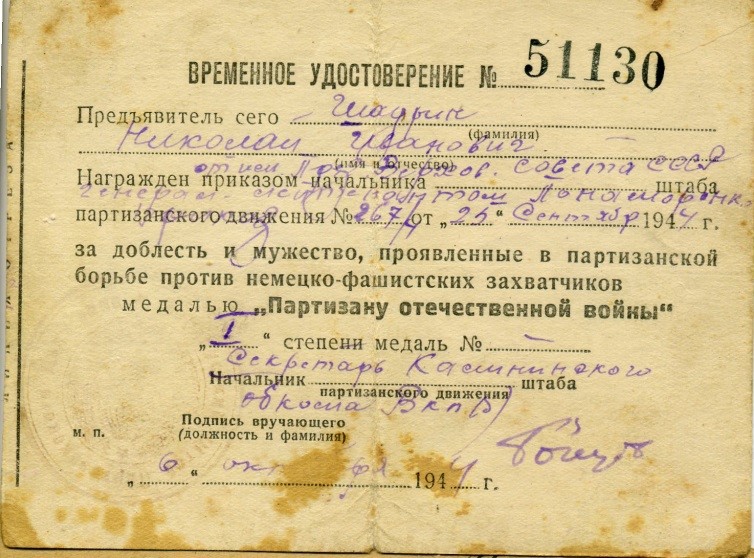 ВРЕМЕННОЕ УДОСТОВЕРЕНИЕ № 51130
Предъявитель сего Шадрин
(фамилия)
Николай Иванович
(имя и отчество)
от имени През Верхов. Совета СССР
Награжден приказом начальника штаба
генерал-лейтенантом Пономаренко
партизанского движения № 267/ от „25“ Сентябр 1944 г.
за доблесть и мужество, проявленные в партизанской
борьбе против немецко-фашистских захватчиков
медалью „Партизану отечественной войны“
„I“ степени медаль № —
Секретарь Калининского
Начальник штаба
партизанского движения
Обкома ВКП(б)
Подпись вручающего
м. п. (должность и фамилия)
„6“ октября 1944 г.